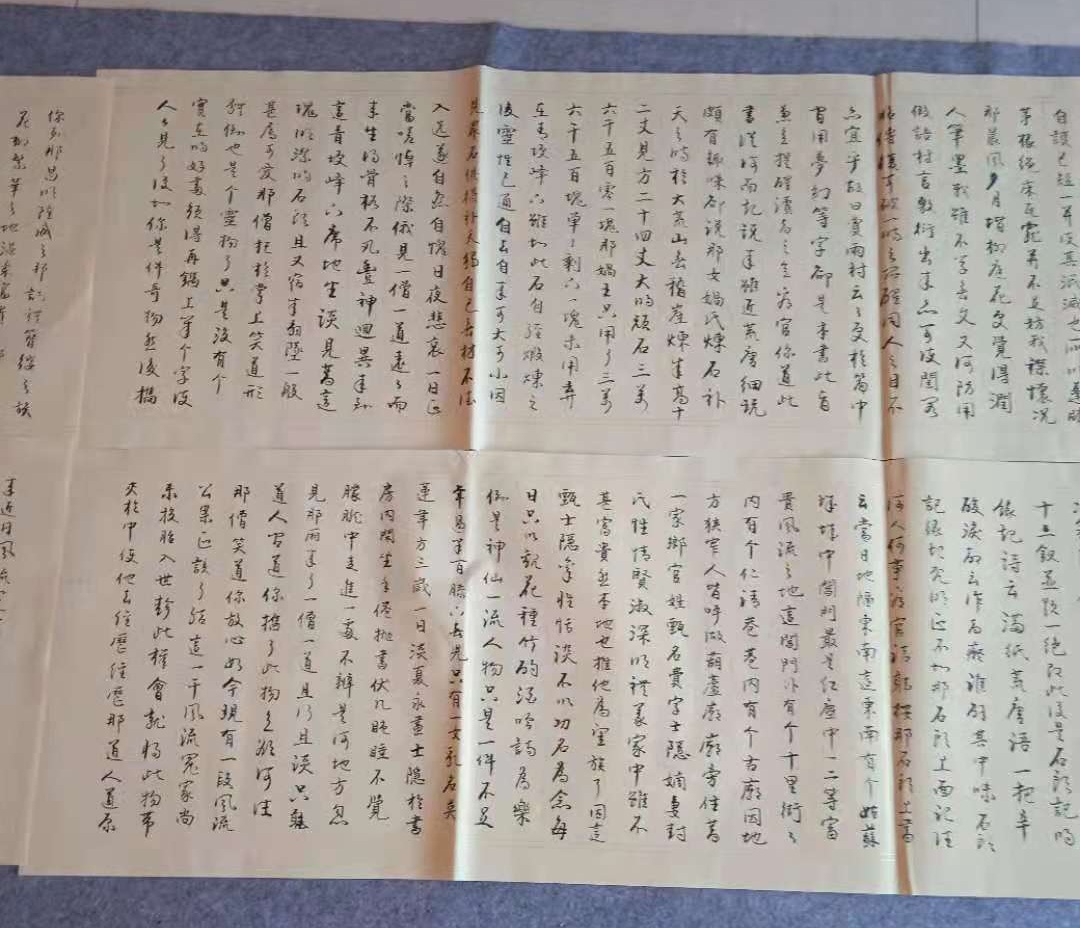 自護己短一并使其泯滅也所以蓬牖
茅椽繩床瓦竈並不足妨我襟懷況
那晨風夕月增柳庭花更覺得潤
人筆墨我雖不學無文又何妨用
假語村言敷衍出來亦可使閨閣
一時之 醒同人之目不
亦宜乎故曰賈雨村云云更於篇中
間用夢幻等字卻是本書此旨
兼寓提醒讀者之意看官你道此
書從何而起說來雖近荒唐細玩
頗有趣味卻說那女媧氏煉石補
天之時於大荒山無稽崖煉成高十
二丈見方二十四丈大的頑石三萬
六千五百零一塊那媧皇只用了三萬
六千五百塊單單剩下一塊未用棄
在青埂峰下誰知此石自經煅煉之
後靈性已通自去自來可大可小因
見眾石俱得補天獨自己無材不得
入選遂自怨自愧日夜悲哀一日正
當嗟悼之際俄見一僧一道遠遠而
來生得骨格不凡豐神迥異來到
這青埂峰下席地坐談見著這
塊明潔的石頭且又縮成扇墜一般
甚屬可愛那僧托於掌上笑道形
體倒也是個靈物了只是沒有個
實在的好處須得再鐫上幾個字使
人人見了便知你是件奇物然後攜
你到那昌明隆盛之邦詩禮簪纓之族
花柳繁華之地溫柔富貴
十二釵並題一絕即此便是石頭記的
緣起詩云滿紙荒唐言一把辛
酸淚都云作者癡誰解其中味石頭
記緣起既明正不知那石頭上面記著
何人何事看官請聽按那石頭上書
云當日地陷東南這東南有個姑蘇
城城中閶門最是紅塵中一二等富
貴風流之地這閶門外有個十里街街
內有個仁清巷巷內有個古廟因地
方狹窄人皆呼做葫蘆廟廟旁住着
一家鄉宦姓甄名費字士隱嫡妻封
氏性情賢淑深明禮義家中雖不
甚富貴然本地也推他為望族了因這
甄士隱稟性恬淡不以功名為念每
日只以觀花種竹酌酒吟詩為樂
倒是神仙一流人物只是一件不足
年過半百膝下無兒只有一女乳名英
蓮年方三歲一日炎夏永晝士隱於書
房內閒坐手倦拋書伏几盹睡不覺
朦朧中走進一處不辨是何地方忽
見那廂來了一僧一道且行且談只聽
道人問道你攜了此物意欲何往
那僧笑道你放心如今現有一段風流
公案正該了結這一干風流冤家尚
未投胎入世趁此機會就將此物夾
夾於中使他去經歷經歷那道人道原
來近日風流冤